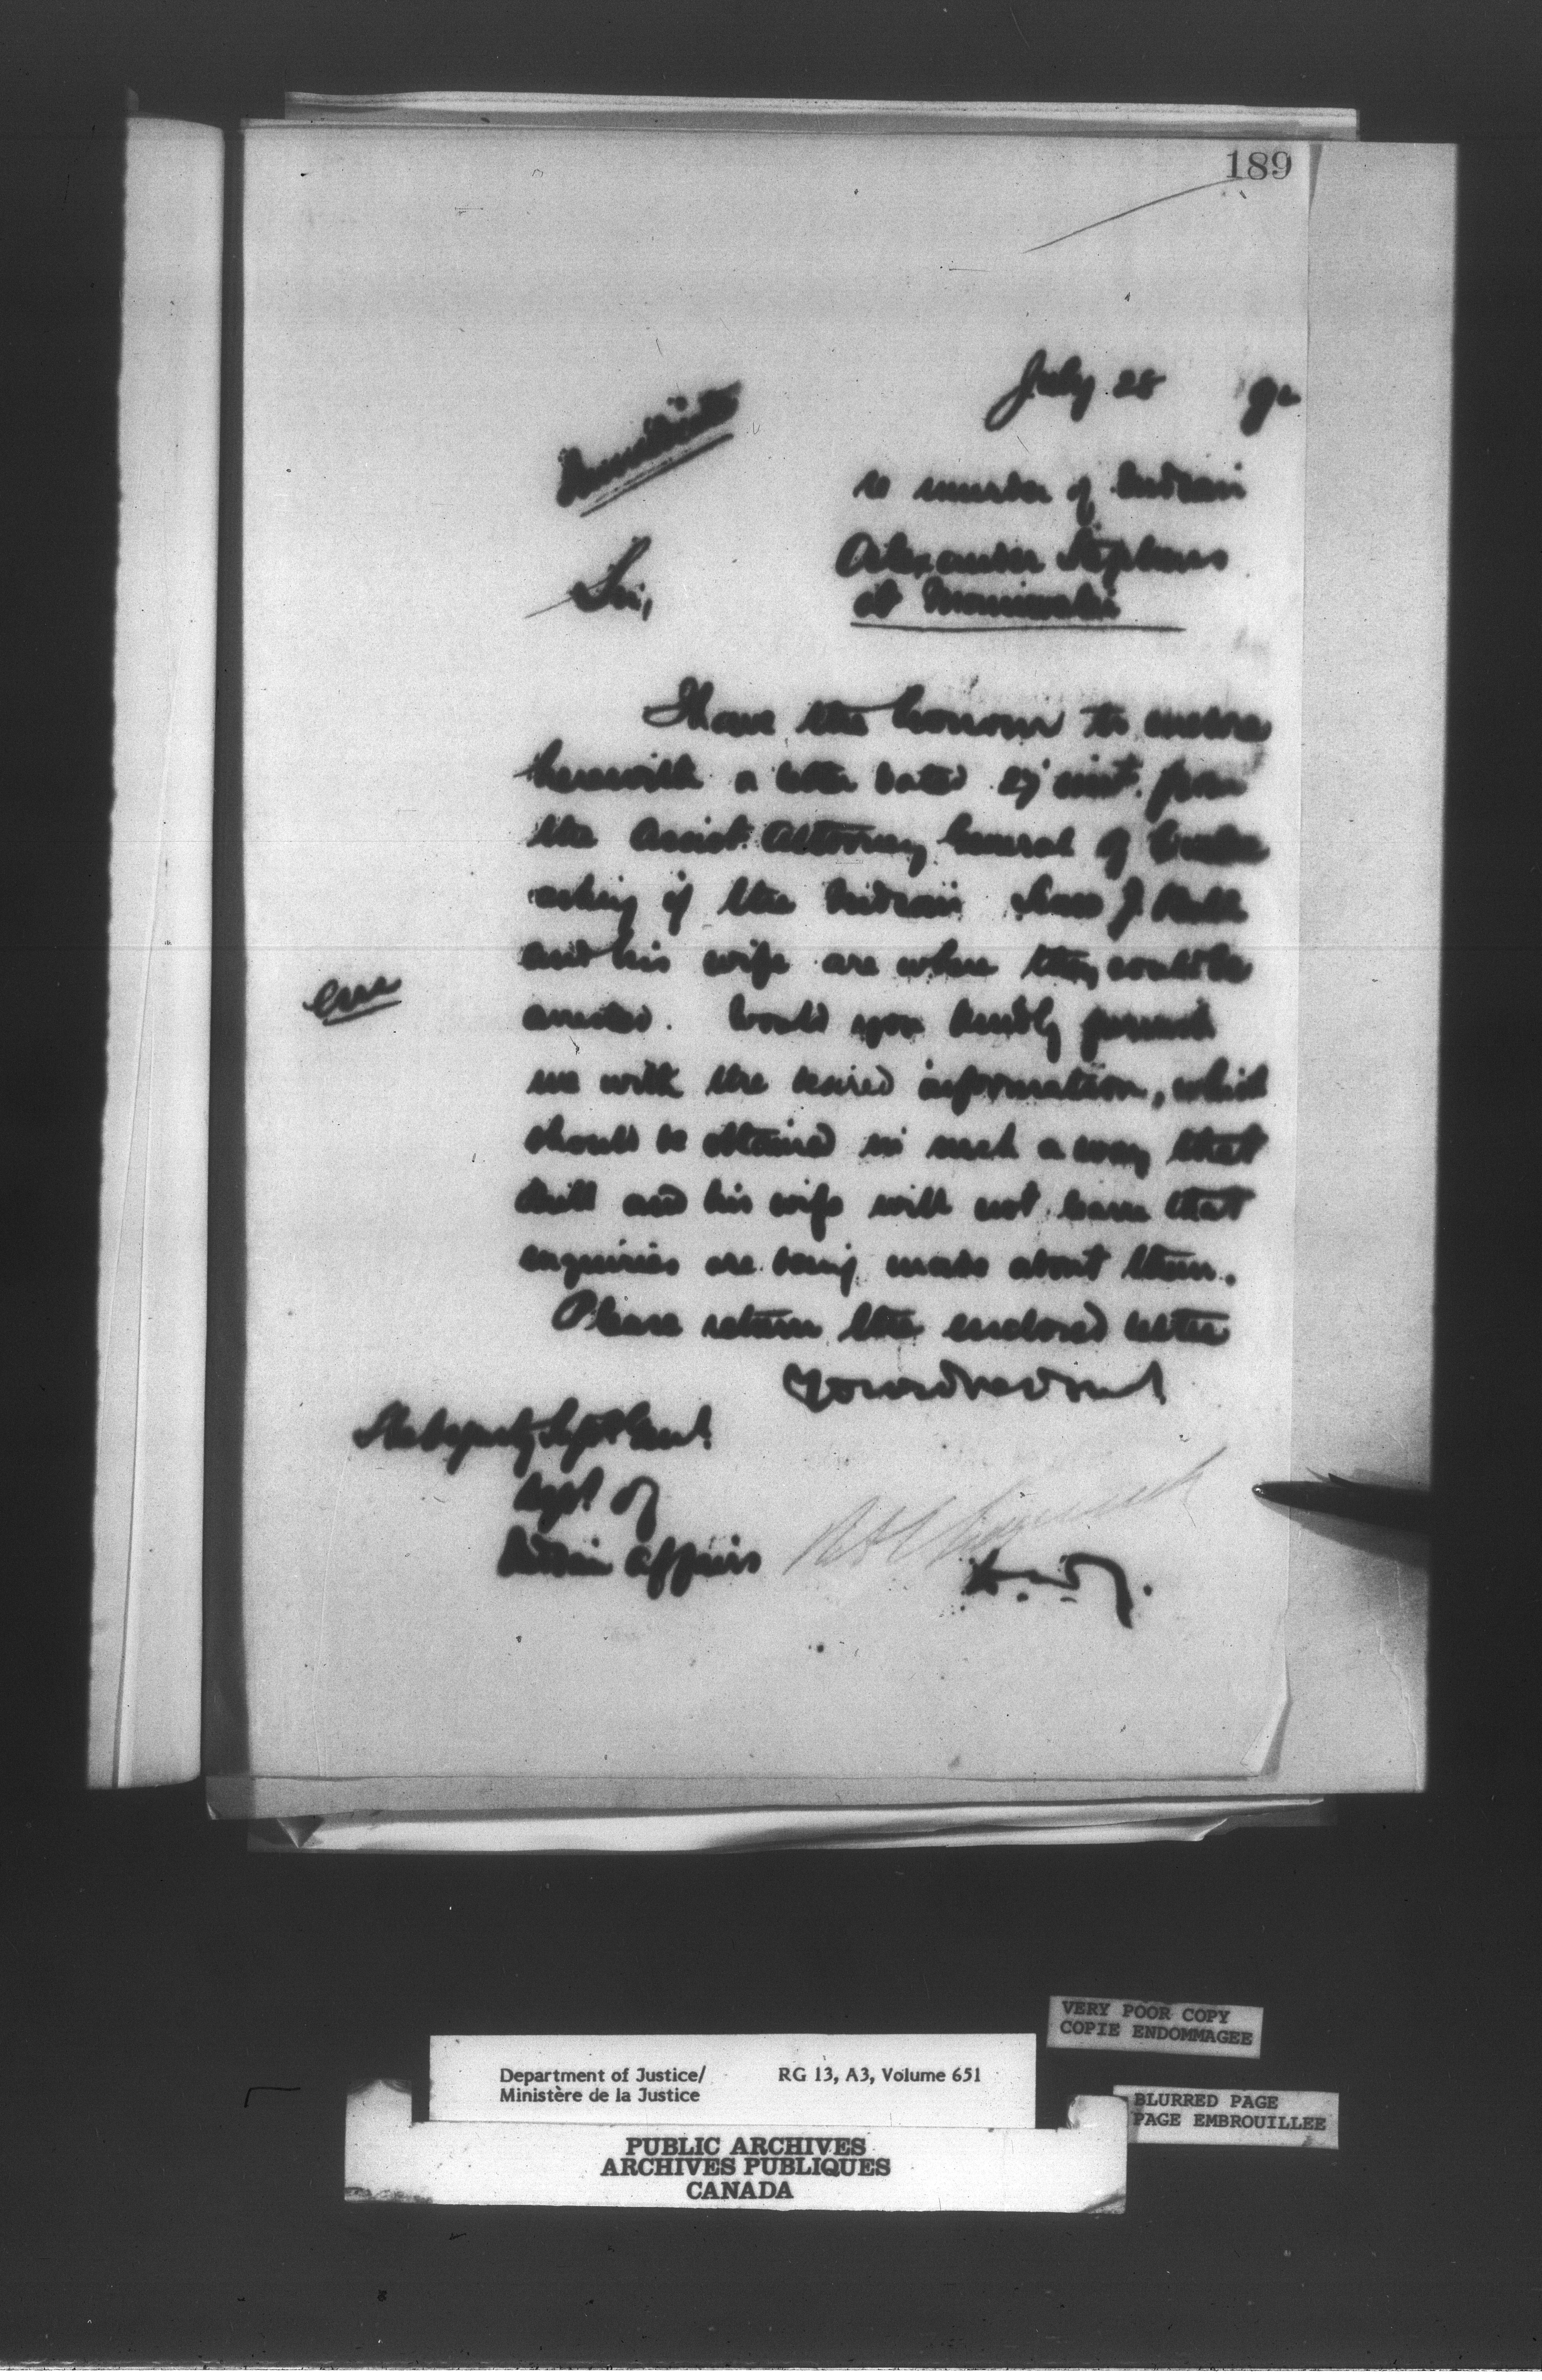 189
July 28 90
Immediate
re murder of Indian
Alexander Stephens
Sir,
at Maniwaki
I have the honour to enclose
herewith a letter dated 27 inst. from
the Assist. Attorney General of Quebec
asking if the Indian
and his wife are where they could be
enc
arrested. Would you kindly furnish
me with the desired information, which
should be obtained in such a way that
and his wife will not learn that
enquiries are being made about them.
Please return the enclosed letter
The Deputy Supt Genl.
Dept of
Indian Affairs
VERY POOR COPY
COPIE ENDOMMAGEE
Department of Justice/ RG 13, A3, Volume 651
Ministère de la Justice
BLURRED PAGE
PAGE EMBROUILLEE
PUBLIC ARCHIVES
ARCHIVES PUBLIQUES
CANADA